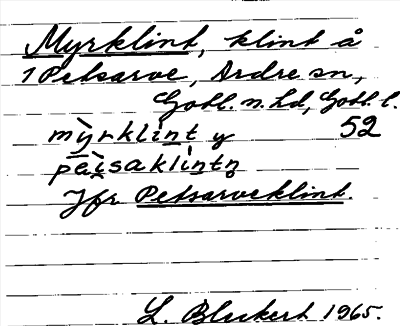 Myrklint, klint å
1 Petsarve, Ardre sn,
Gotl. n. hd, Gotl. l.
mỳrklint y 52
pàisaklintn̥
Jfr Petsarveklint.
L. Bleckert 1965.